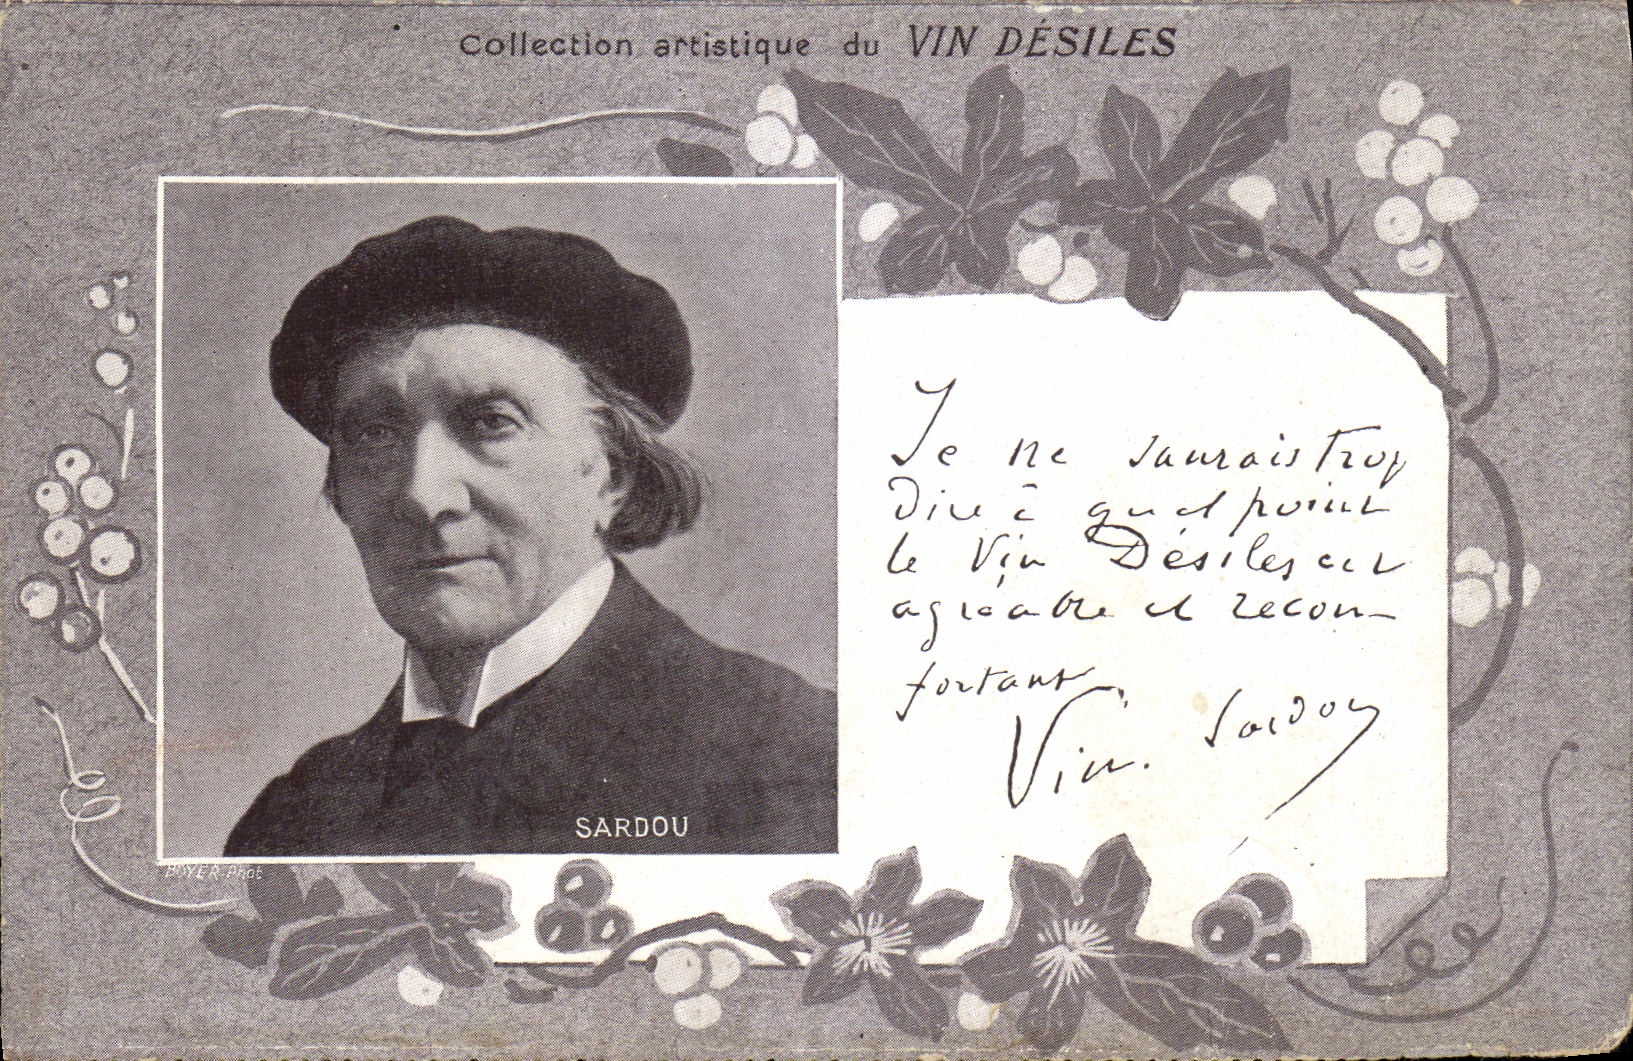 Collection artistique du VIN DÉSILES
Je ne saurais trop
Dire à quel point
le Vin Désiles est
agréable et recon-
fortant
Vic. Sardou
SARDOU
BOYER Phot